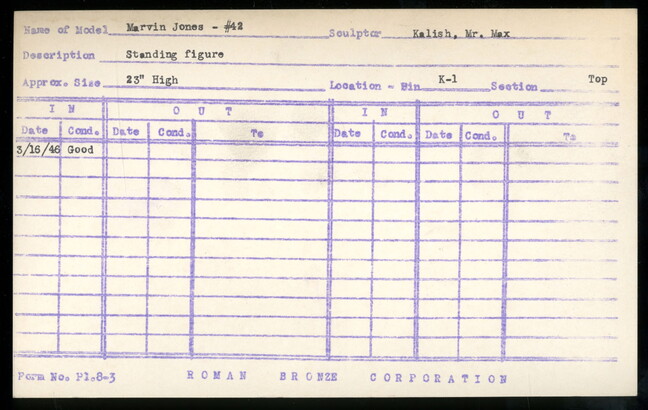 Name of Model Marvin Jones - #42 Sculptor Kalish, Mr. Max
Description Standing figure
Approx. Size 23" High Location - Bin K-1 Section Top
I N O U T I N O U T
Date Cond. Date Cond. To Date Cond. Date Cond. To
3/16/46 Good
Form No. Pl.8-3 ROMAN BRONZE CORPORATION